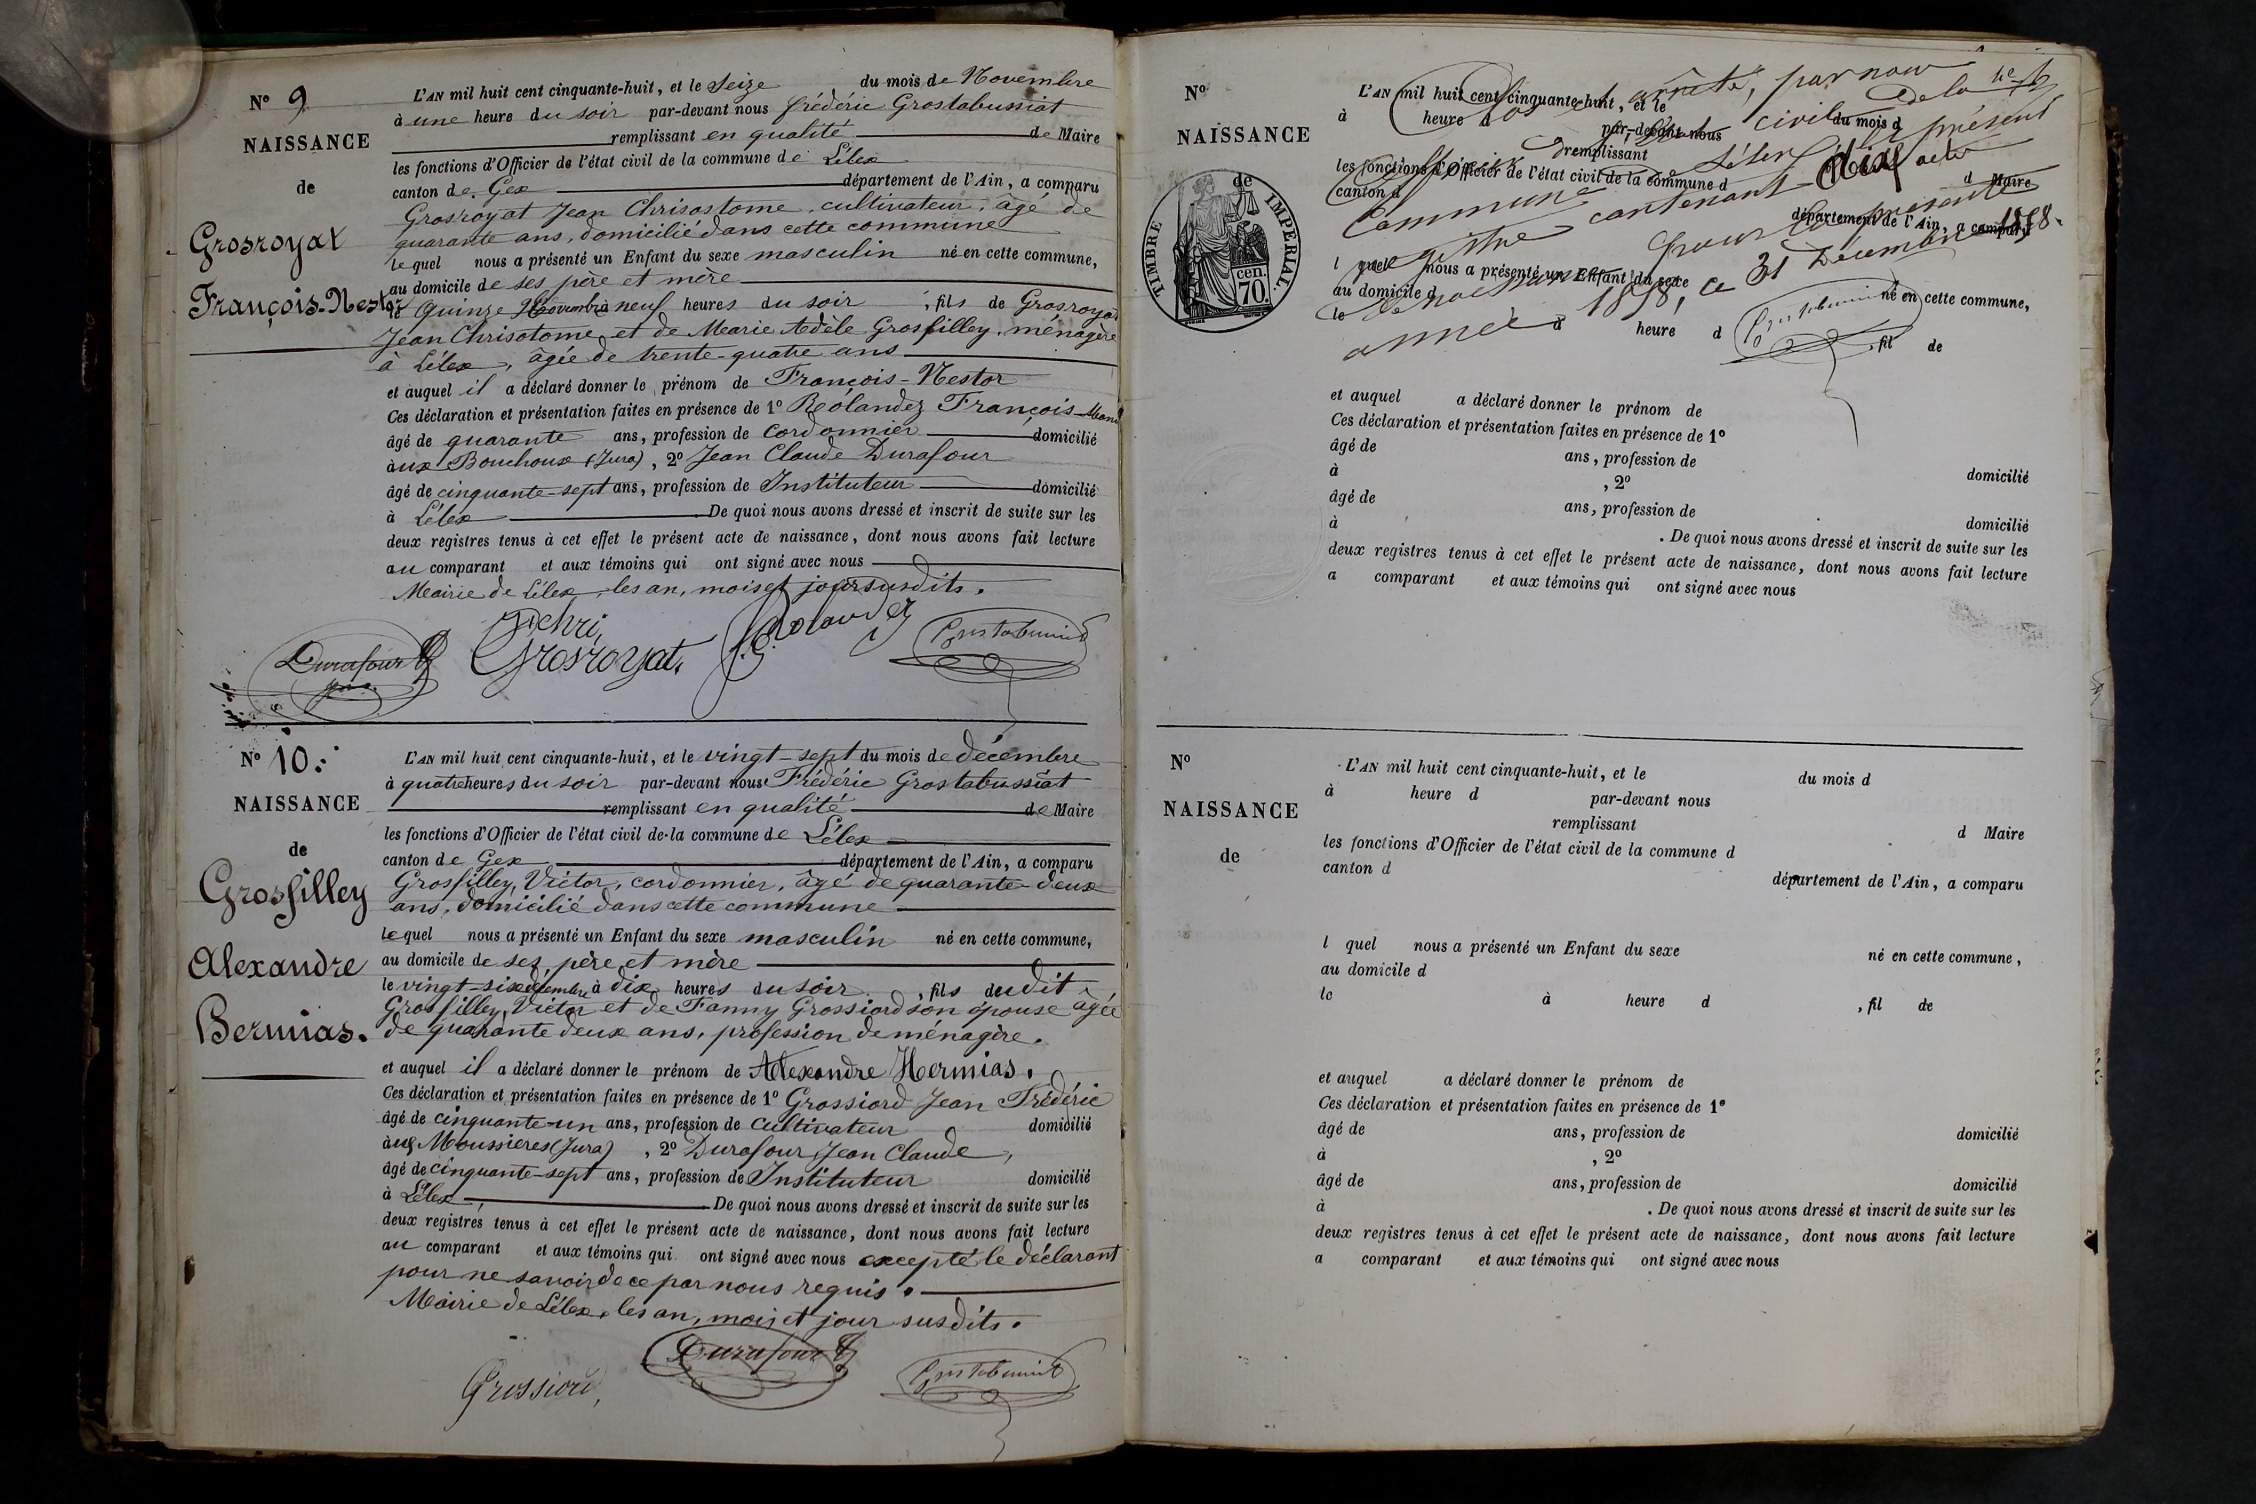 N° 9.
NAISSANCE
de
Grosroyat
François-Nestor
L'AN mil huit cent cinquante-huit, et le Seize du mois de Novembre
à une heure du soir par-devant nous frédéric Grostabussiat
remplissant en qualité de Maire
les fonctions d'Officier de l'état civil de la commune de Lélex
canton de Gex département de l'Ain, a comparu
Grosroyat Jean Chrisostome, cultivateur, âgé de
quarante ans, domicilié dans cette commune
lequel nous a présenté un Enfant du sexe masculin né en cette commune,
au domicile de ses père et mère
le quinze Novembre à neuf heures du soir, fils de Grosroyat
Jean Chrisotome et de Marie Adèle Grosfilley, ménagère
à Lélex, âgée de trente-quatre ans
et auquel il a déclaré donner le prénom de François-Nestor
Ces déclaration et présentation faites en présence de 1° Rolandez François-Marie
âgé de quarante ans, profession de cordonnier domicilié
aux Bouchoux (Jura), 2° Jean Claude Durafour
âgé de cinquante-sept ans, profession de Instituteur domicilié
à Lélex De quoi nous avons dressé et inscrit de suite sur les
deux registres tenus à cet effet le présent acte de naissance, dont nous avons fait lecture
au comparant et aux témoins qui ont signé avec nous
Mairie de Lélex, les an, mois et jour susdits.
Durafour Grosroyat. Rolandez Grostabussiat
N° 10.
NAISSANCE
de
Grosfilley
Alexandre
Bermias.
L'AN mil huit cent cinquante-huit, et le vingt-sept du mois de décembre
à quatre heures du soir par-devant nous Frédéric Grostabussiat
remplissant en qualité de Maire
les fonctions d'Officier de l'état civil de la commune de Lélex
canton de Gex département de l'Ain, a comparu
Grosfilley, Victor, cordonnier, âgé de quarante-deux
ans, domicilié dans cette commune
lequel nous a présenté un Enfant du sexe masculin né en cette commune,
au domicile de ses père et mère
le vingt-six décembre à dix heures du soir, fils dudit
Grosfilley, Victor et de Fanny Grossiord son épouse âgée
de quarante deux ans, profession de ménagère.
et auquel il a déclaré donner le prénom de Alexandre Hermias.
Ces déclaration et présentation faites en présence de 1° Grossiord Jean Frédéric
âgé de cinquante-un ans, profession de cultivateur domicilié
aux Moussieres (Jura), 2° Durafour Jean Claude,
âgé de cinquante-sept ans, profession de Instituteur domicilié
à Lélex De quoi nous avons dressé et inscrit de suite sur les
deux registres tenus à cet effet le présent acte de naissance, dont nous avons fait lecture
au comparant et aux témoins qui ont signé avec nous excepté le déclarant
pour ne savoir de ce par nous requis.
Mairie de Lélex, les an, mois et jour susdits.
Grossiord, Durafour Grostabussiat
N°
NAISSANCE
de
TIMBRE IMPERIAL.
70. cen.
L'AN mil huit cent cinquante-huit, et le du mois d
à heure d par-devant nous
remplissant d Maire
les fonctions d'Officier de l'état civil de la commune d
canton d département de l'Ain, a comparu
l quel nous a présenté un Enfant du sexe né en cette commune,
au domicile d
le à heure d , fil de
Clos et arrêté, par nous
civil de la
commune Lélex le présent
registre contenant dix actes
de naissance pour la présente
année 1858, ce 31 Décembre 1858.
Grostabussiat
et auquel a déclaré donner le prénom de
Ces déclaration et présentation faites en présence de 1°
âgé de ans, profession de domicilié
à , 2°
âgé de ans, profession de domicilié
à . De quoi nous avons dressé et inscrit de suite sur les
deux registres tenus à cet effet le présent acte de naissance, dont nous avons fait lecture
a comparant et aux témoins qui ont signé avec nous
N°
NAISSANCE
de
L'AN mil huit cent cinquante-huit, et le du mois d
à heure d par-devant nous
remplissant d Maire
les fonctions d'Officier de l'état civil de la commune d
canton d département de l'Ain, a comparu
l quel nous a présenté un Enfant du sexe né en cette commune,
au domicile d
le à heure d , fil de
et auquel a déclaré donner le prénom de
Ces déclaration et présentation faites en présence de 1°
âgé de ans, profession de domicilié
à , 2°
âgé de ans, profession de domicilié
à . De quoi nous avons dressé et inscrit de suite sur les
deux registres tenus à cet effet le présent acte de naissance, dont nous avons fait lecture
a comparant et aux témoins qui ont signé avec nous